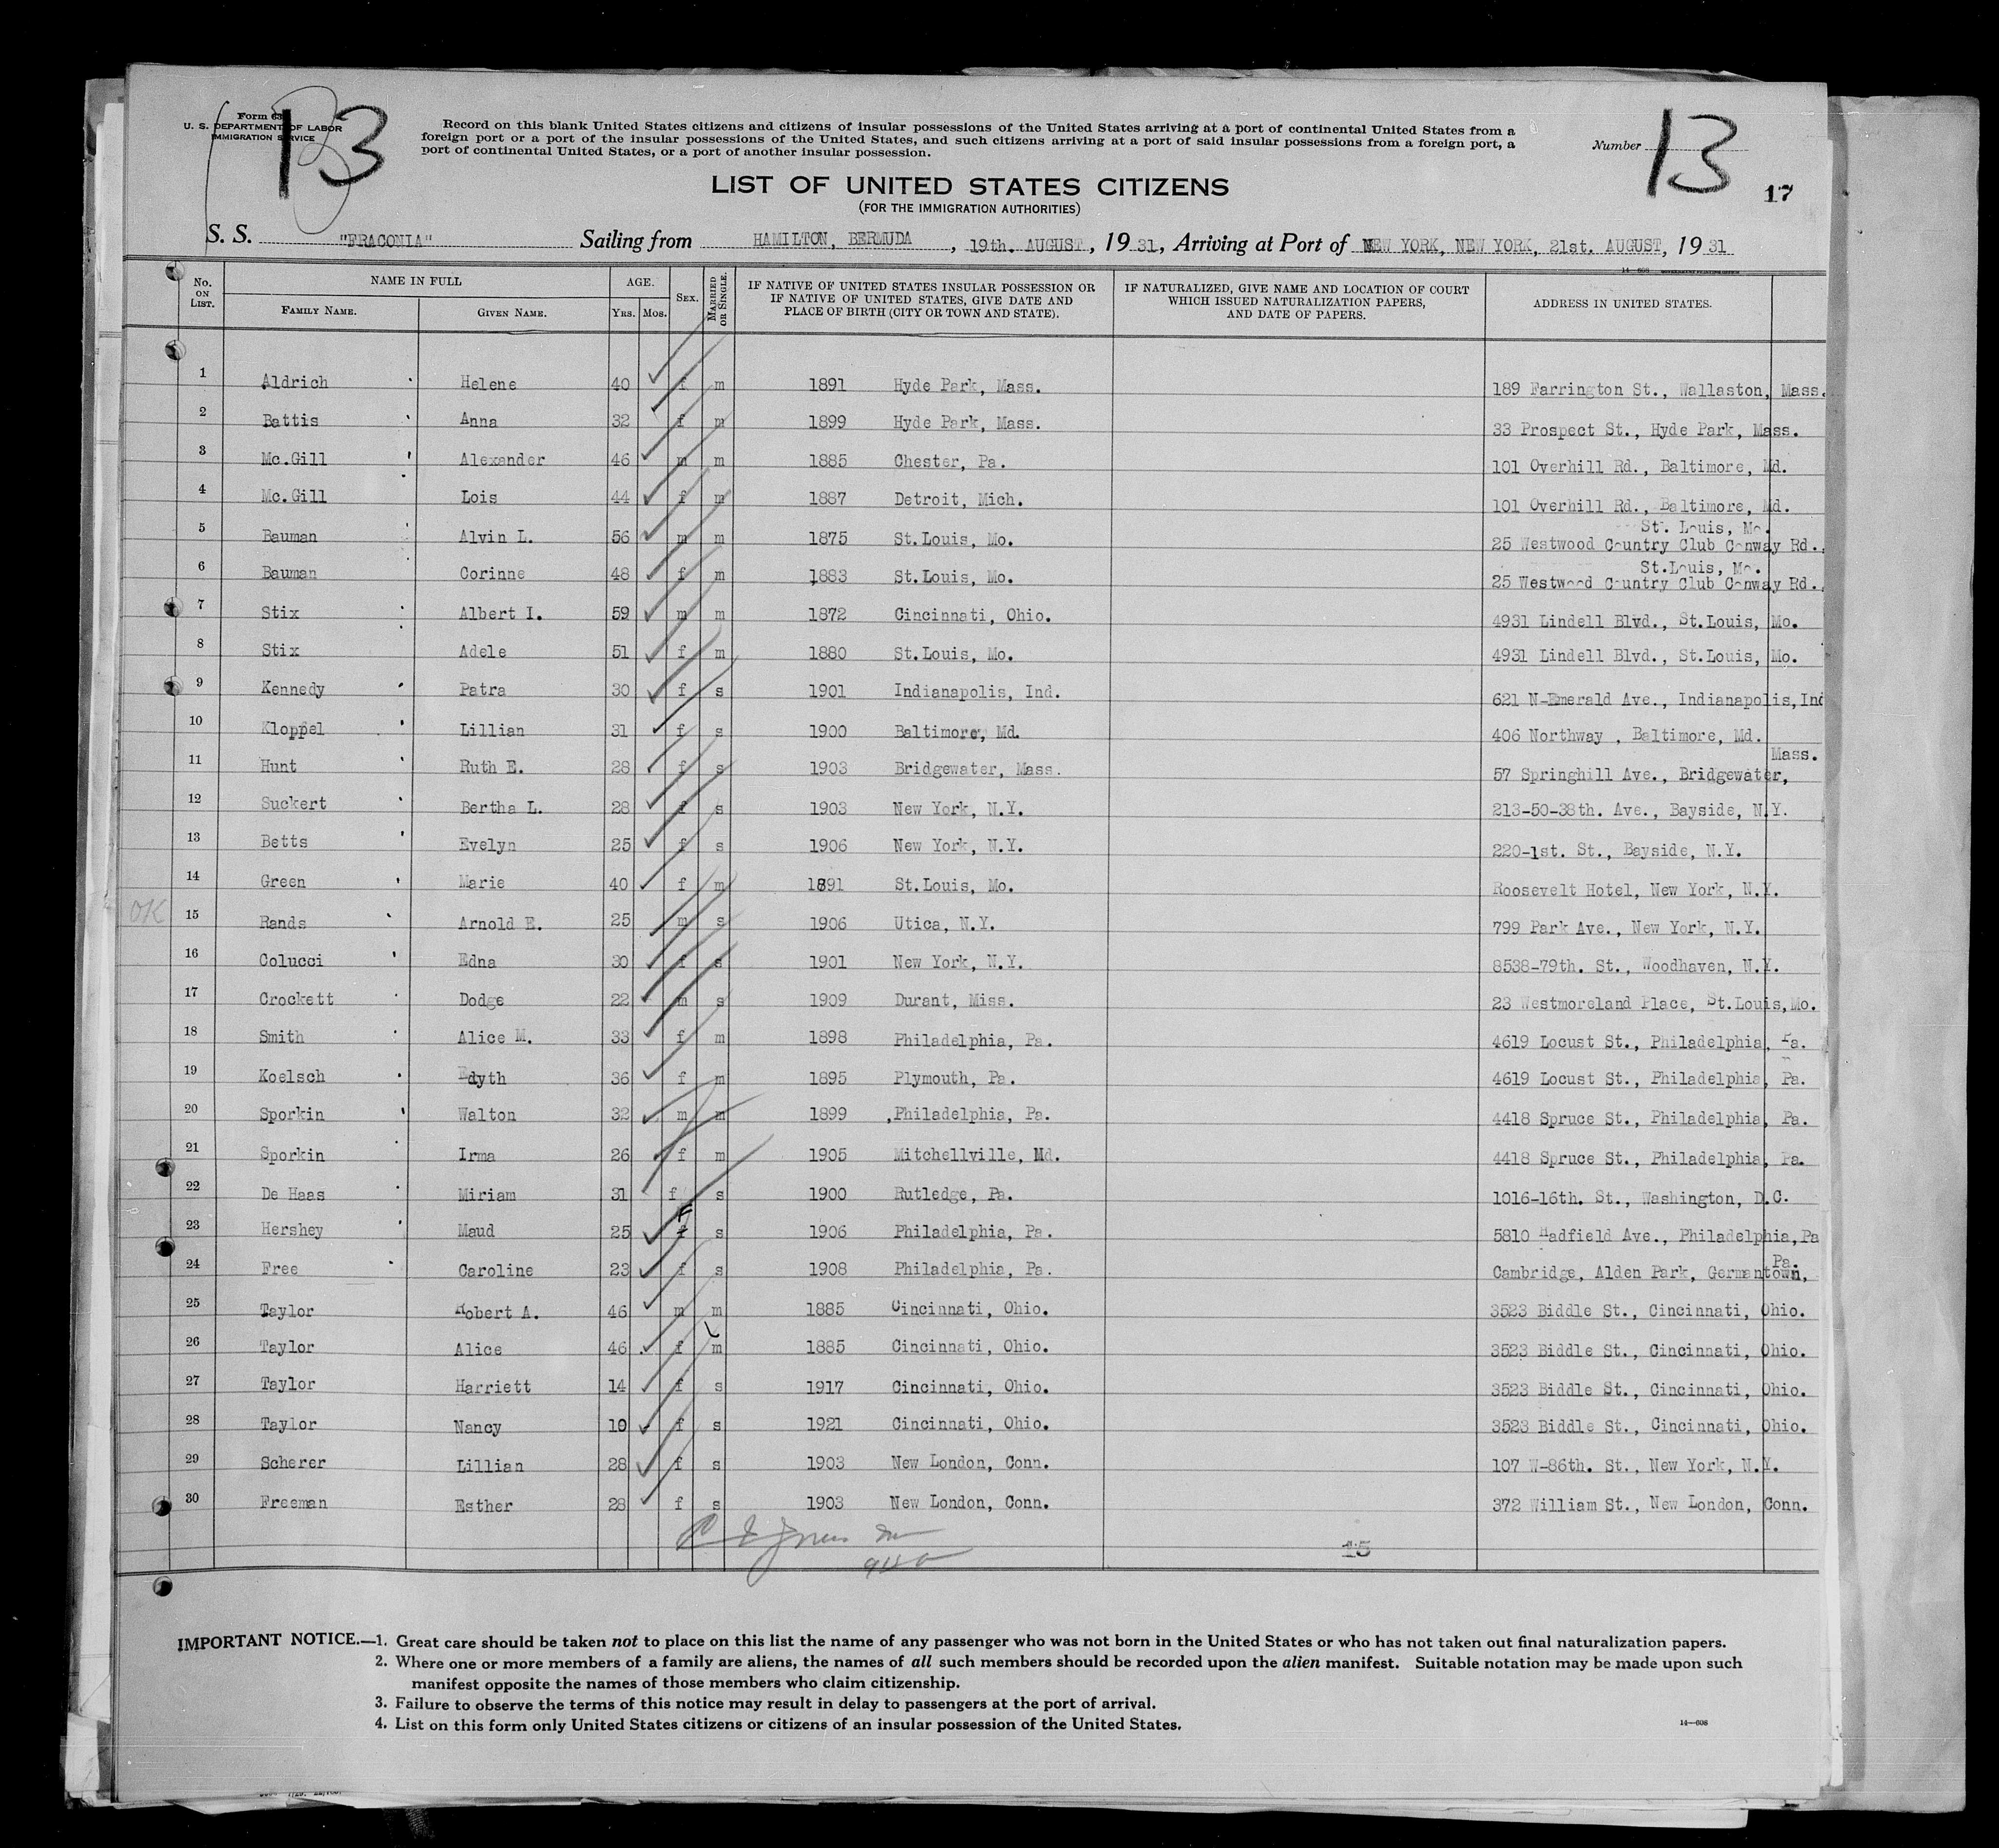 Form
U. S. DEPARTMENT OF LABOR
IMMIGRATION SERVICE
13
Record on this blank United States citizens and citizens of insular possessions of the United States arriving at a port of continental United States from a
foreign port or a port of the insular possessions of the United States, and such citizens arriving at a port of said insular possessions from a foreign port, a
port of continental United States, or a port of another insular possession.
Number 13
17
LIST OF UNITED STATES CITIZENS
(FOR THE IMMIGRATION AUTHORITIES)
S. S. "FRACONIA" Sailing from HAMILTON, BERMUDA, 19th. AUGUST, 1931, Arriving at Port of NEW YORK, NEW YORK, 21st. AUGUST, 1931
No. ON LIST. NAME IN FULL FAMILY NAME. GIVEN NAME. AGE. YRS. MOS. SEX. MARRIED OR SINGLE. IF NATIVE OF UNITED STATES INSULAR POSSESSION OR IF NATIVE OF UNITED STATES, GIVE DATE AND PLACE OF BIRTH (CITY OR TOWN AND STATE). IF NATURALIZED, GIVE NAME AND LOCATION OF COURT WHICH ISSUED NATURALIZATION PAPERS, AND DATE OF PAPERS. ADDRESS IN UNITED STATES.
1 Aldrich Helene 40 f m 1891 Hyde Park, Mass. 189 Farrington St., Wallaston, Mass.
2 Battis Anna 32 f m 1899 Hyde Park, Mass. 33 Prospect St., Hyde Park, Mass.
3 Mc.Gill Alexander 46 m m 1885 Chester, Pa. 101 Overhill Rd., Baltimore, Md.
4 Mc.Gill Lois 44 f m 1887 Detroit, Mich. 101 Overhill Rd., Baltimore, Md.
5 Bauman Alvin L. 56 m m 1875 St.Louis, Mo. 25 Westwood Country Club Conway Rd., St. Louis, Mo.
6 Bauman Corinne 48 f m 1883 St.Louis, Mo. 25 Westwood Country Club Conway Rd., St.Louis, Mo.
7 Stix Albert I. 59 m m 1872 Cincinnati, Ohio. 4931 Lindell Blvd., St.Louis, Mo.
8 Stix Adele 51 f m 1880 St.Louis, Mo. 4931 Lindell Blvd., St.Louis, Mo.
9 Kennedy Patra 30 f s 1901 Indianapolis, Ind. 621 N-Emerald Ave., Indianapolis, Ind
10 Kloppel Lillian 31 f s 1900 Baltimore, Md. 406 Northway , Baltimore, Md.
11 Hunt Ruth E. 28 f s 1903 Bridgewater, Mass. 57 Springhill Ave., Bridgewater, Mass.
12 Suckert Bertha L. 28 f s 1903 New York, N.Y. 213-50-38th. Ave., Bayside, N.Y.
13 Betts Evelyn 25 f s 1906 New York, N.Y. 220-1st. St., Bayside, N.Y.
14 Green Marie 40 f m 1891 St.Louis, Mo. Roosevelt Hotel, New York, N.Y.
OK 15 Rands Arnold E. 25 m s 1906 Utica, N.Y. 799 Park Ave., New York, N.Y.
16 Colucci Edna 30 f s 1901 New York, N.Y. 8538-79th. St., Woodhaven, N.Y.
17 Crockett Dodge 22 m s 1909 Durant, Miss. 23 Westmoreland Place, St.Louis, Mo.
18 Smith Alice M. 33 f m 1898 Philadelphia, Pa. 4619 Locust St., Philadelphia, Pa.
19 Koelsch Edyth 36 f m 1895 Plymouth, Pa. 4619 Locust St., Philadelphia, Pa.
20 Sporkin Walton 32 m m 1899 Philadelphia, Pa. 4418 Spruce St., Philadelphia, Pa.
21 Sporkin Irma 26 f m 1905 Mitchellville, Md. 4418 Spruce St., Philadelphia, Pa.
22 De Haas Miriam 31 f s 1900 Rutledge, Pa. 1016-16th. St., Washington, D.C.
23 Hershey Maud 25 f F s 1906 Philadelphia, Pa. 5810 Hadfield Ave., Philadelphia, Pa
24 Free Caroline 23 f s 1908 Philadelphia, Pa. Cambridge, Alden Park, Germantown, Pa.
25 Taylor Robert A. 46 m m 1885 Cincinnati, Ohio. 3523 Biddle St., Cincinnati, Ohio.
26 Taylor Alice 46 f m 1885 Cincinnati, Ohio. 3523 Biddle St., Cincinnati, Ohio.
27 Taylor Harriett 14 f s 1917 Cincinnati, Ohio. 3523 Biddle St., Cincinnati, Ohio.
28 Taylor Nancy 10 f s 1921 Cincinnati, Ohio. 3523 Biddle St., Cincinnati, Ohio.
29 Scherer Lillian 28 f s 1903 New London, Conn. 107 W-86th. St., New York, N.Y.
30 Freeman Esther 28 f s 1903 New London, Conn. 372 William St., New London, Conn.
15
IMPORTANT NOTICE.—1. Great care should be taken not to place on this list the name of any passenger who was not born in the United States or who has not taken out final naturalization papers.
2. Where one or more members of a family are aliens, the names of all such members should be recorded upon the alien manifest. Suitable notation may be made upon such
manifest opposite the names of those members who claim citizenship.
3. Failure to observe the terms of this notice may result in delay to passengers at the port of arrival.
4. List on this form only United States citizens or citizens of an insular possession of the United States.
14—608